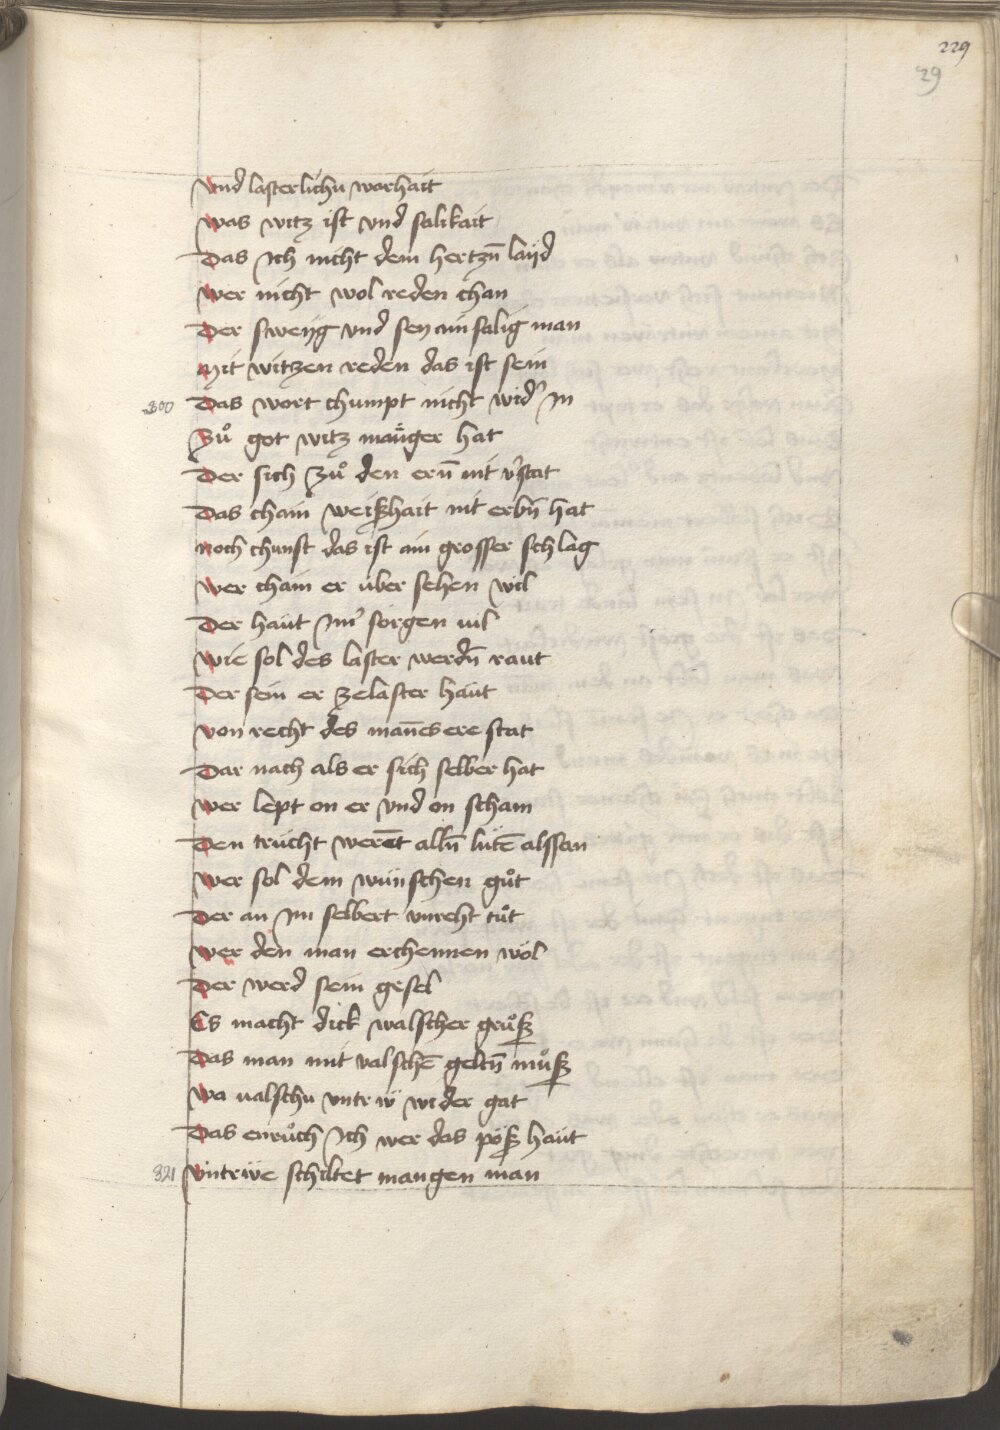 229
29
Vnd lasterlichu warhait
Was witz ist vnd sälikait
Das Ich nicht dem hertzn̄ laÿd
Wer nicht wol reden chan
Der sweÿg vnd seÿ ain sälig man
Mit witzen reden das ist sein
300 Das wort chumpt nicht wid' In
Zů got witz manger hat
Der sich zů den ern̄ nit v'stat
Das chain weißhait nit erbn̄ hat
Noch chunst das ist ain grosser schlag
Wer chain er über sehen wil
Der haüt Im' sorgen uil
Wie sol des laster werdn̄ raut
Der sein er ze laster haüt
Von recht des mannes ere stat
Dar nach als er sich selber hat
Wer lept on er vnd on scham
Den trücht werēt alln̄ lütē alssan
Wer sol dem wünschen gůt
Der an Im selbert vnreht tůt
Wer den man erchennen wöl
Der werd sein gesel
Es macht dick walscher grůß
Das man mit valschē geltn̄ můß
Wa ualschu vntriw wider gat
Das enrůch Ich wer das pöß haüt
321 Vntriwe schiltet mangen man